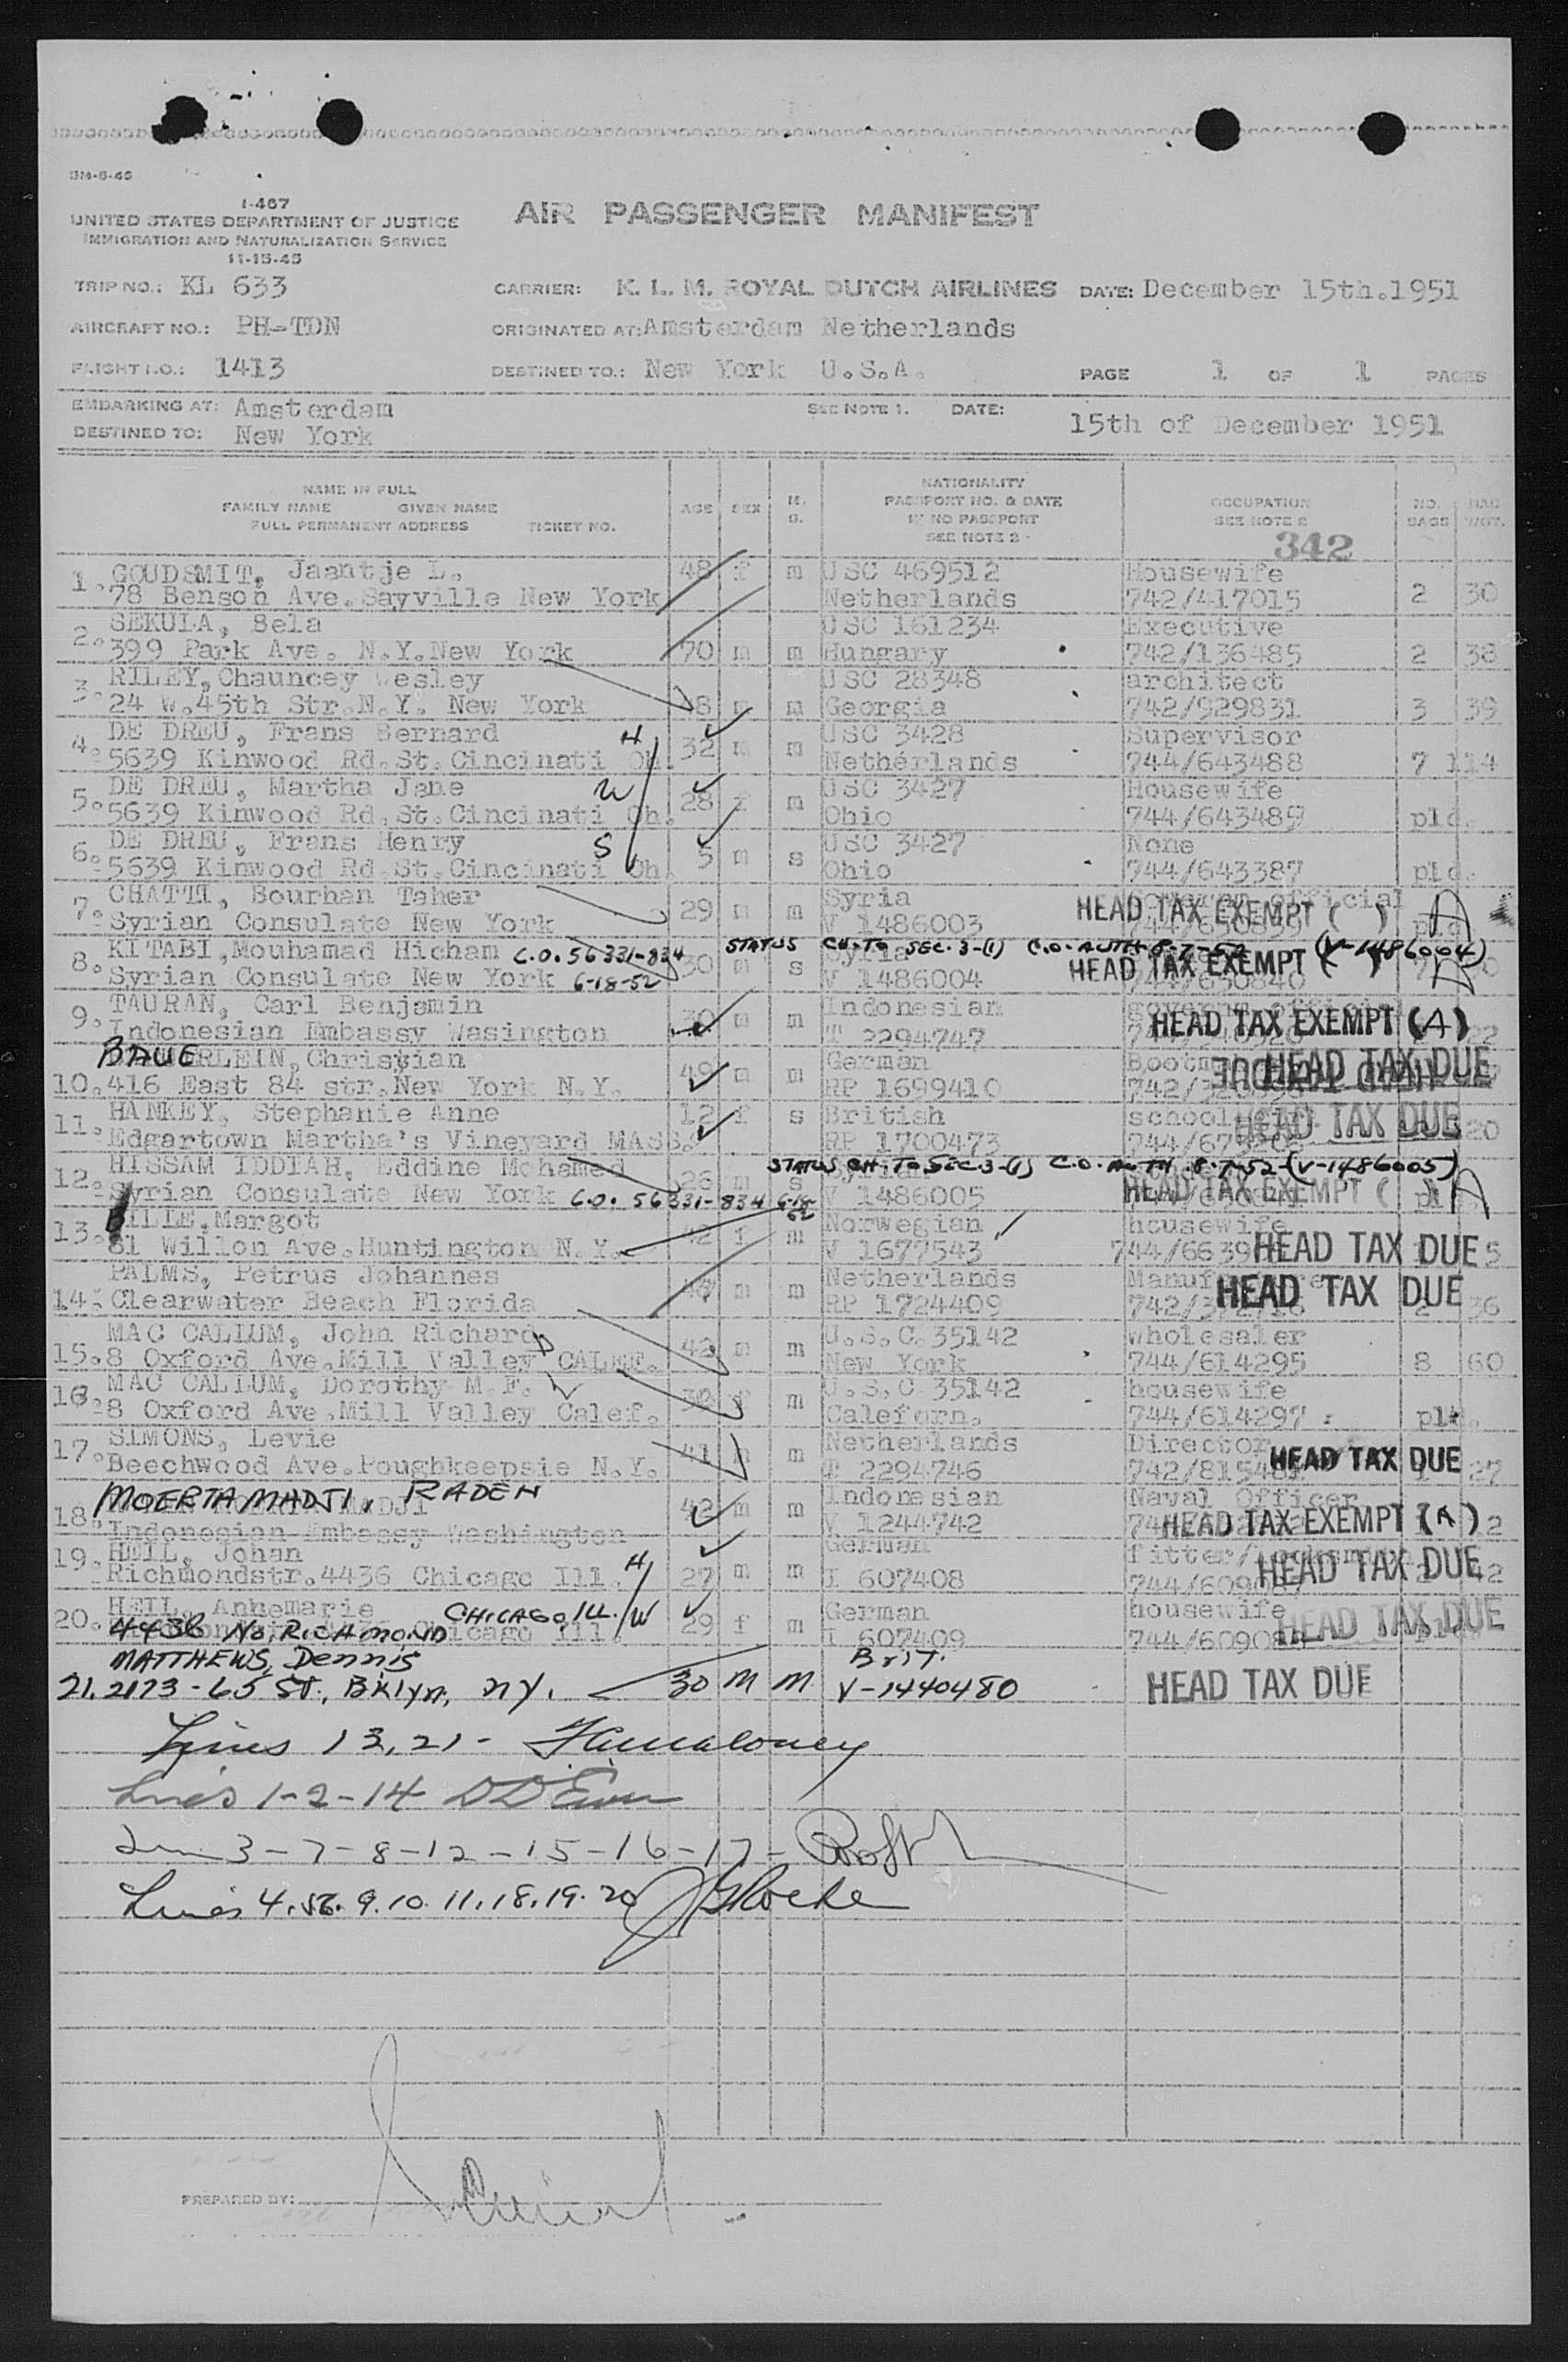 I-467
UNITED STATES DEPARTMENT OF JUSTICE
IMMIGRATION AND NATURALIZATION SERVICE
11-15-45
AIR PASSENGER MANIFEST
TRIP NO.: KL 633 CARRIER: K. L. M. ROYAL DUTCH AIRLINES DATE: December 15th.1951
AIRCRAFT NO.: PH-TDN ORIGINATED AT: Amsterdam Netherlands
FLIGHT NO.: 1413 DESTINED TO.: New York U.S.A. PAGE 1 OF 1 PAGES
EMBARKING AT: Amsterdam SEE NOTE 1. DATE: 15th of December 1951
DESTINED TO: New York
NAME IN FULL
FAMILY NAME GIVEN NAME
FULL PERMANENT ADDRESS TICKET NO.
AGE SEX M. S.
NATIONALITY
PASSPORT NO. & DATE
IF NO PASSPORT
SEE NOTE 2
OCCUPATION
SEE NOTE 2
NO. BAGS BAG WGT.
342
1. GOUDSMIT, Jaantje L. 48 f m USC 469512 Housewife
78 Benson Ave. Sayville New York Netherlands 742/417015 2 30
2. SEKULA, Bela 70 m m USC 161234 Executive
399 Park Ave. N.Y. New York Hungary 742/136485 2 38
3. RILEY, Chauncey Wesley 48 m m USC 28348 architect
24 W.45th Str.N.Y. New York Georgia 742/929831 3 39
4. DE DREU, Frans Bernard H 32 m m USC 3428 Supervisor
5639 Kinwood Rd.St.Cincinati Oh. Netherlands 744/643488 7 114
5. DE DREU, Martha Jane W 28 f m USC 3427 Housewife
5639 Kinwood Rd.St.Cincinati Oh. Ohio 744/643489 pld.
6. DE DREU, Frans Henry S 5 m s USC 3427 None
5639 Kinwood Rd.St.Cincinati Oh. Ohio 744/643387 pld.
7. CHATTI, Bourhan Taher 29 m m Syria official
Syrian Consulate New York V 1486003 744/650839 HEAD TAX EXEMPT ( ) A
8. KITABI, Mouhamad Hicham C.O. 56331-834 STATUS CH. TO SEC. 3-(1) C.O. AUTH 8-7-52 (V-1486004)
Syrian Consulate New York 6-18-52 30 m s Syria V 1486004 744/650840 HEAD TAX EXEMPT ( ) A
9. TAURAN, Carl Benjamin 30 m m Indonesian
Indonesian Embassy Wasington T 2294747 HEAD TAX EXEMPT (A) 22
BAUE
10. RLEIN, Christian 49 m m German
416 East 84 str.New York N.Y. RP 1699410 HEAD TAX DUE
11. HANKEY, Stephanie Anne 12 f s British school
Edgartown Martha's Vineyard MASS. RP 1700473 HEAD TAX DUE 20
12. HISSAM IDDIAH, Eddine Mohamed 26 m s STATUS CH. TO SEC. 3-(1) C.O. AUTH 8-7-52 (V-1486005)
Syrian Consulate New York C.O. 56331-834 6-18-52 V 1486005 HEAD TAX EXEMPT ( ) A
13. Margot 42 f m Norwegian housewife
81 Willon Ave.Huntington N.Y. V 1677543 HEAD TAX DUE
14. PALMS, Petrus Johannes m m Netherlands
Clearwater Beach Florida RP 1724409 HEAD TAX DUE 36
15. MAC CALLUM, John Richard 42 m m U.S.C.35142 wholesaler
8 Oxford Ave.Mill Valley CALEF. New York 744/614295 8 60
16. MAC CALLUM, Dorothy M.F. W f m U.S.C.35142 housewife
8 Oxford Ave.Mill Valley Calef. Caleforn. 744/614297 pld.
17. SIMONS, Levie 41 m m Netherlands Director
Beechwood Ave.Poughkeepsie N.Y. T 2294746 HEAD TAX DUE 27
MOERTAMADJI, RADEN
18. 42 m m Indonesian Naval Officer
Indonesian Embassy Washington V 1244742 HEAD TAX EXEMPT (A)
19. HEIL, Johan 27 m m German
Richmondstr.4436 Chicago Ill. H I 607408 HEAD TAX DUE
20. HEIL, Annemarie CHICAGO, ILL. W 29 f m German housewife
4436 No. RICHMOND I 607409 HEAD TAX DUE
MATTHEWS, Dennis Brit.
21. 2173-65 ST., Bklyn, N.Y. 30 M M V-1440480 HEAD TAX DUE
Lines 13, 21 -
Lines 1-2-14
3-7-8-12-15-16-17-
Lines 4. 5 6. 9. 10. 11. 18. 19. 20
PREPARED BY: